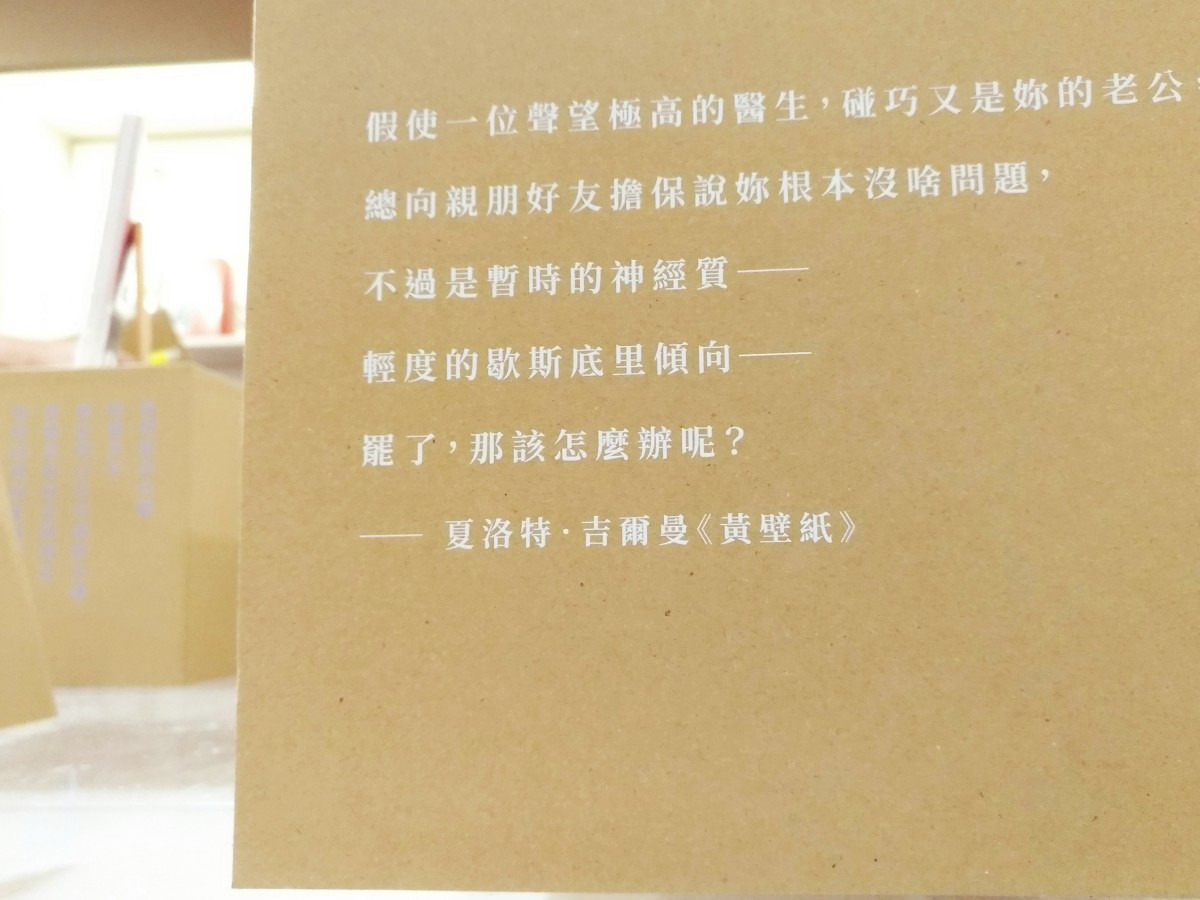 假使一位聲望極高的醫生，碰巧又是妳的老公，
總向親朋好友擔保說妳根本沒啥問題，
不過是暫時的神經質——
輕度的歇斯底里傾向——
罷了，那該怎麼辦呢？
—— 夏洛特·吉爾曼《黃壁紙》